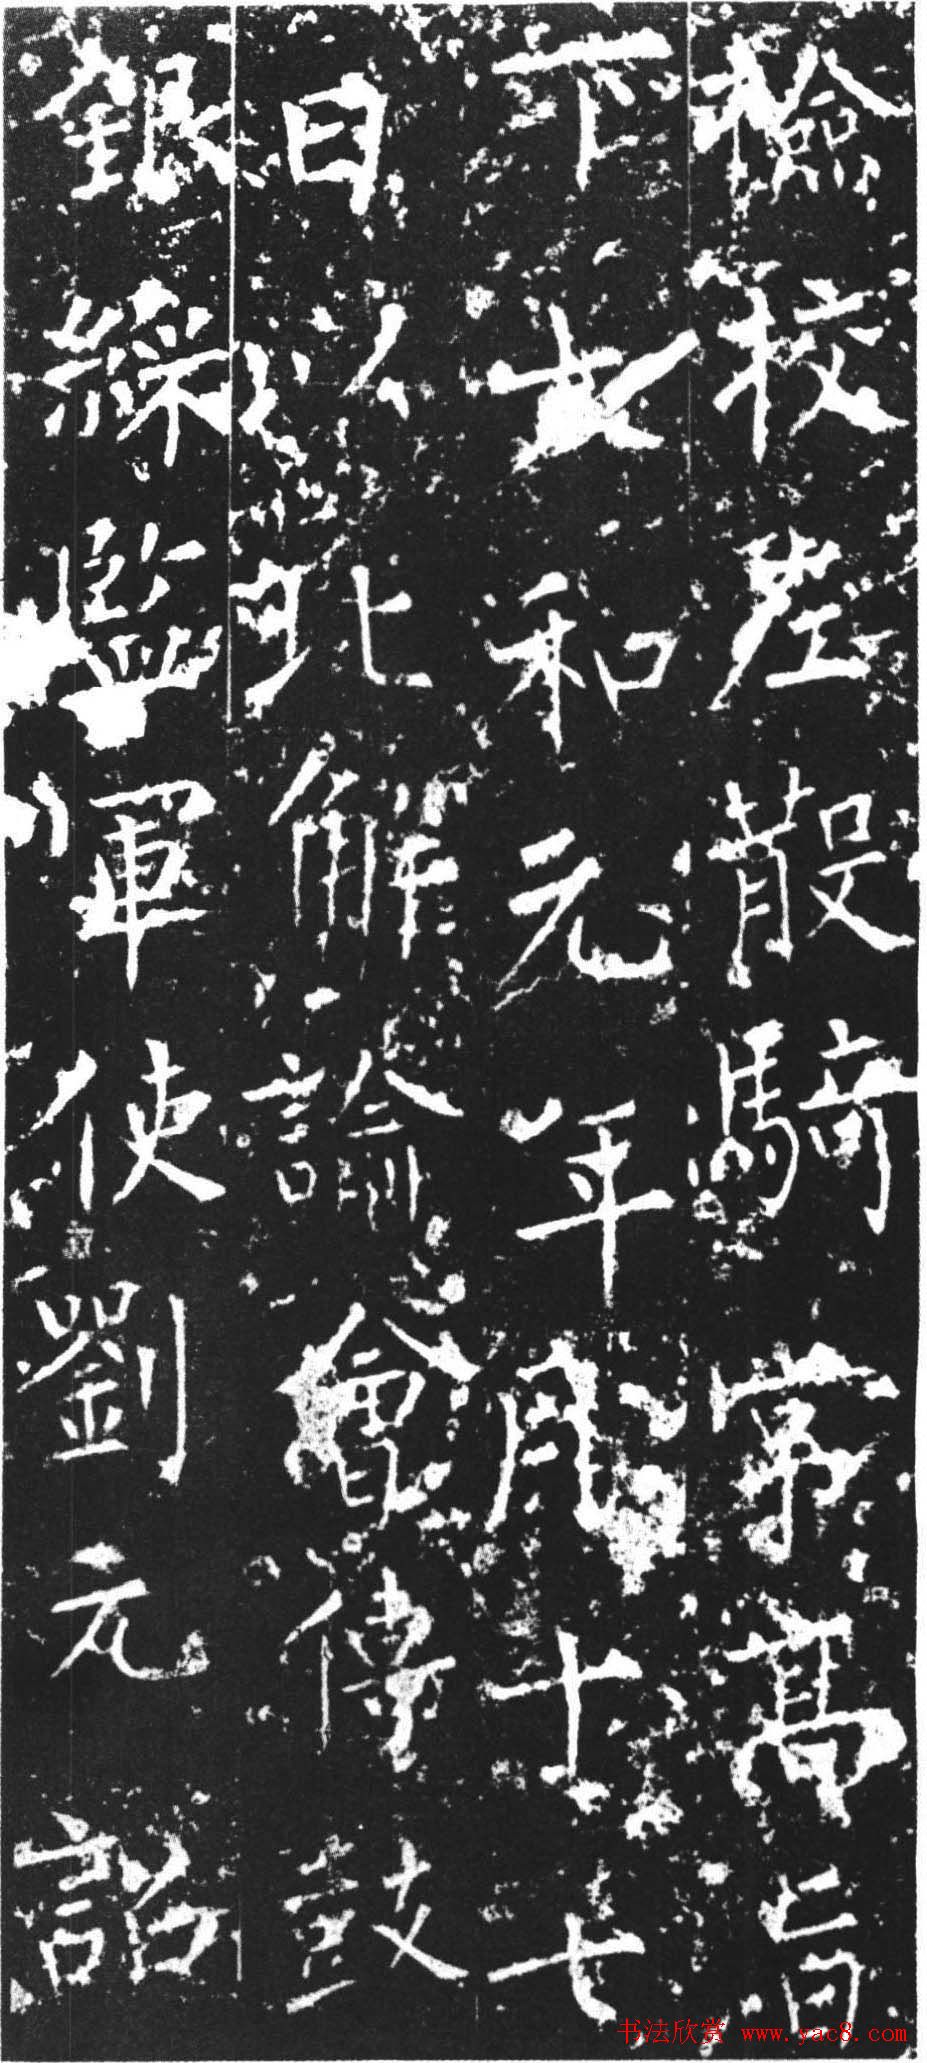 檢校左散騎常高旨
下大和元年月十七
日以解諭會傳鼓
銀綵監軍使劉元詔
书法欣赏 www.yac8.com